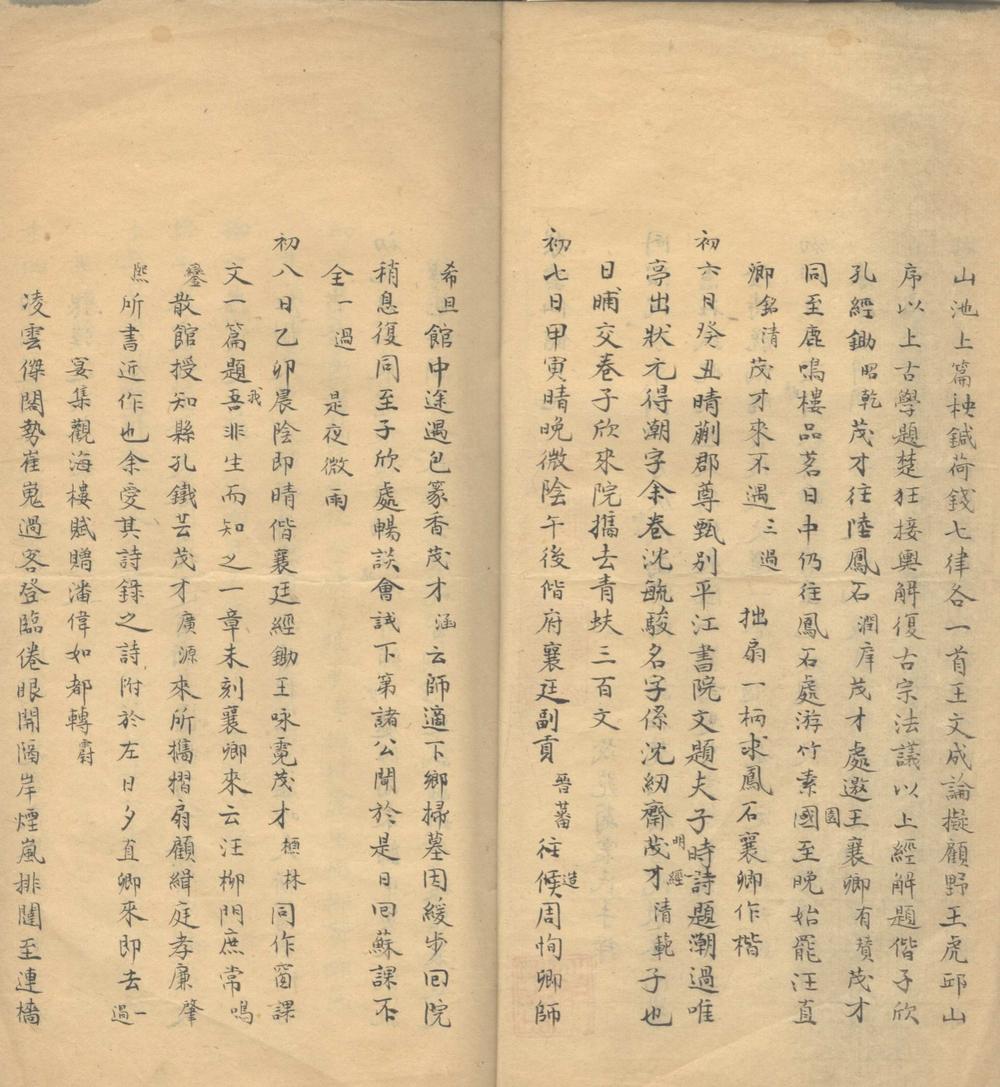 山池上篇秧鍼荷錢七律各一首王文成論擬顧野王虎邱山
序以上古學題楚狂接輿解復古宗法議以上經解題偕子欣
孔經鋤昭乾茂才往陸鳳石潤庠茂才處邀王襄卿有贊茂才
同至鹿鳴樓品茗日中仍往鳳石處游竹素國園至晚始罷汪直
卿銘清茂才來不遇三過 拙扇一柄求鳳石襄卿作楷
初六日癸丑晴蒯郡尊甄別平江書院文題夫子時詩題潮過唯
亭出狀元得潮字余卷沈毓駿名字係沈紉齋茂才明經清範子也
日晡交卷子欣來院攜去青蚨三百文
初七日甲寅晴晚微陰午後偕府襄廷副貢晉蕃往候造周恂卿師
希旦館中途遇包篆香茂才涵云師適下鄉掃墓因緩步回院
稍息復同至子欣處暢談會試下第諸公聞於是日回蘇課不
全一過 是夜微雨
初八日乙卯晨陰即晴偕襄廷經鋤王咏霓茂才極林同作窗課
文一篇題吾我非生而知之一章未刻襄卿來云汪柳門庶常鳴
鑾散館授知縣孔鐵芸茂才廣源來所攜摺扇顧緝庭孝廉肇
熙所書近作也余愛其詩錄之詩附於左日夕直卿來即去一過
宴集觀海樓賦贈潘偉如都轉霨
凌雲傑閣勢崔嵬過客登臨倦眼開隔岸煙嵐排闥至連檣